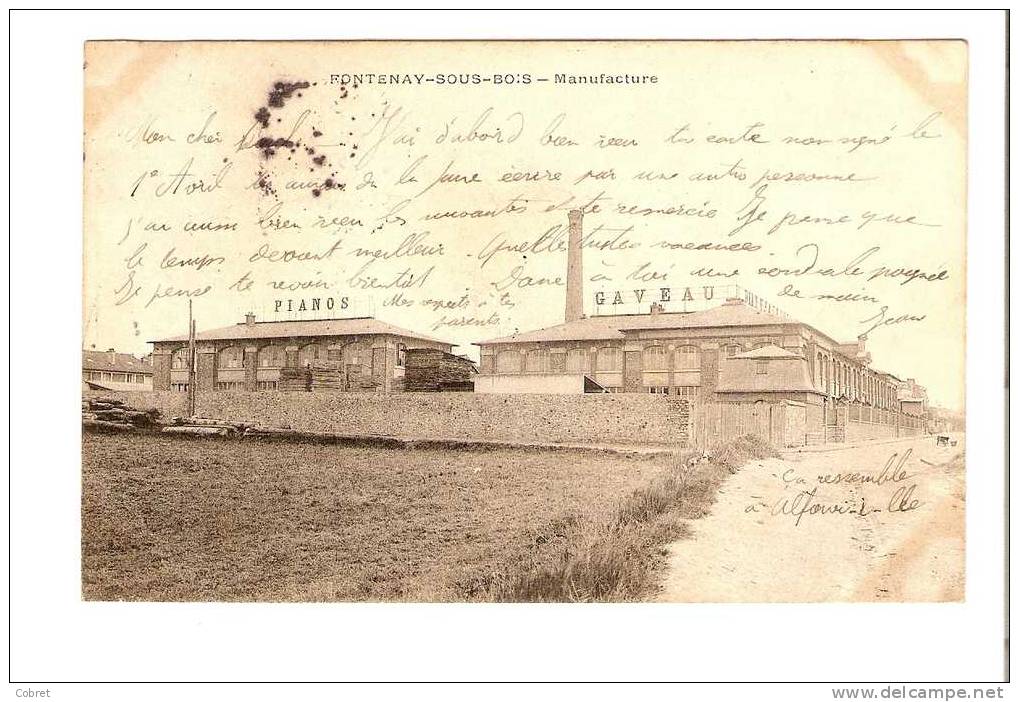 FONTENAY-SOUS-BOIS — Manufacture
Mon cher J'ai d'abord bien reçu ta carte non signé le
1º Avril écrire par une autre personne
j'ai aussi bien reçu les suivantes et te remercie Je pense que
le temps devant meilleur. Quelles tristes vacances
Je pense te revoir bientôt à toi une cordiale poignée
de main
Mes respects à tes
parents. Jean
PIANOS
GAVEAU
Ça ressemble
à Alfor-i-lle
Cobret
www.delcampe.net